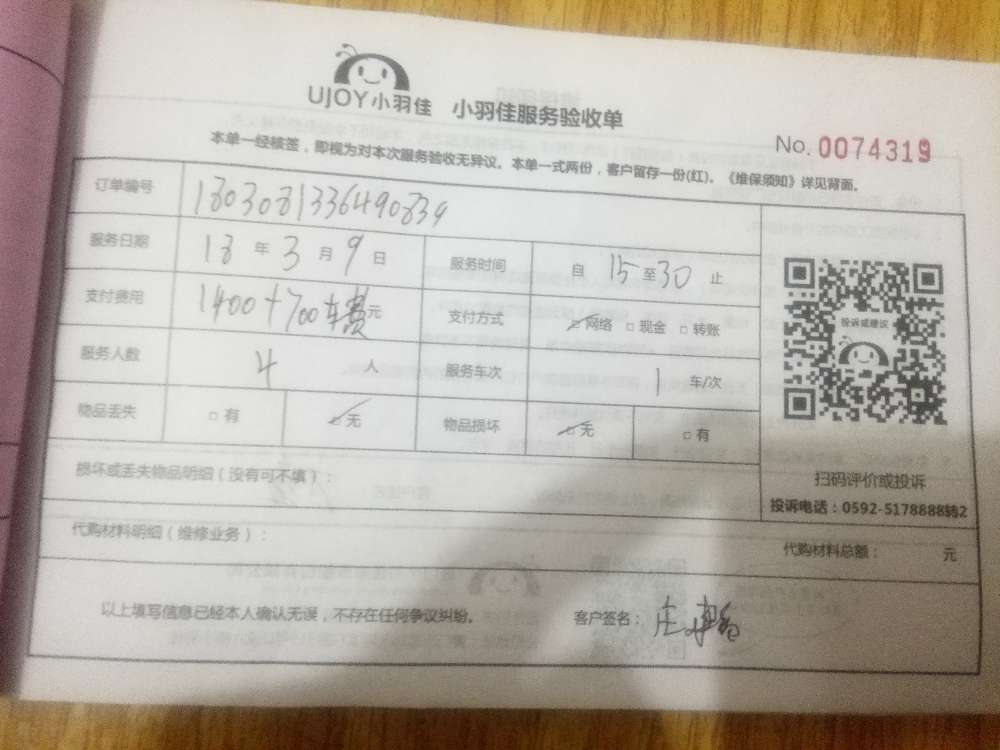 UJOY小羽佳 小羽佳服务验收单
No. 0074319
本单一经核签，即视为对本次服务验收无异议。本单一式两份，客户留存一份(红)。《维保须知》详见背面。
订单编号 1803081336490839
服务日期 18 年 3 月 9 日 服务时间 自 15 至 30 止
支付费用 1400+700车费元 支付方式 □网络 □现金 □转账
服务人数 4 人 服务车次 1 车/次
物品丢失 □有 □无 物品损坏 □无 □有
投诉或建议
扫码评价或投诉
投诉电话：0592-5178888转2
损坏或丢失物品明细（没有可不填）：
代购材料明细（维修业务）： 代购材料总额： 元
以上填写信息已经本人确认无误，不存在任何争议纠纷。 客户签名： 庄